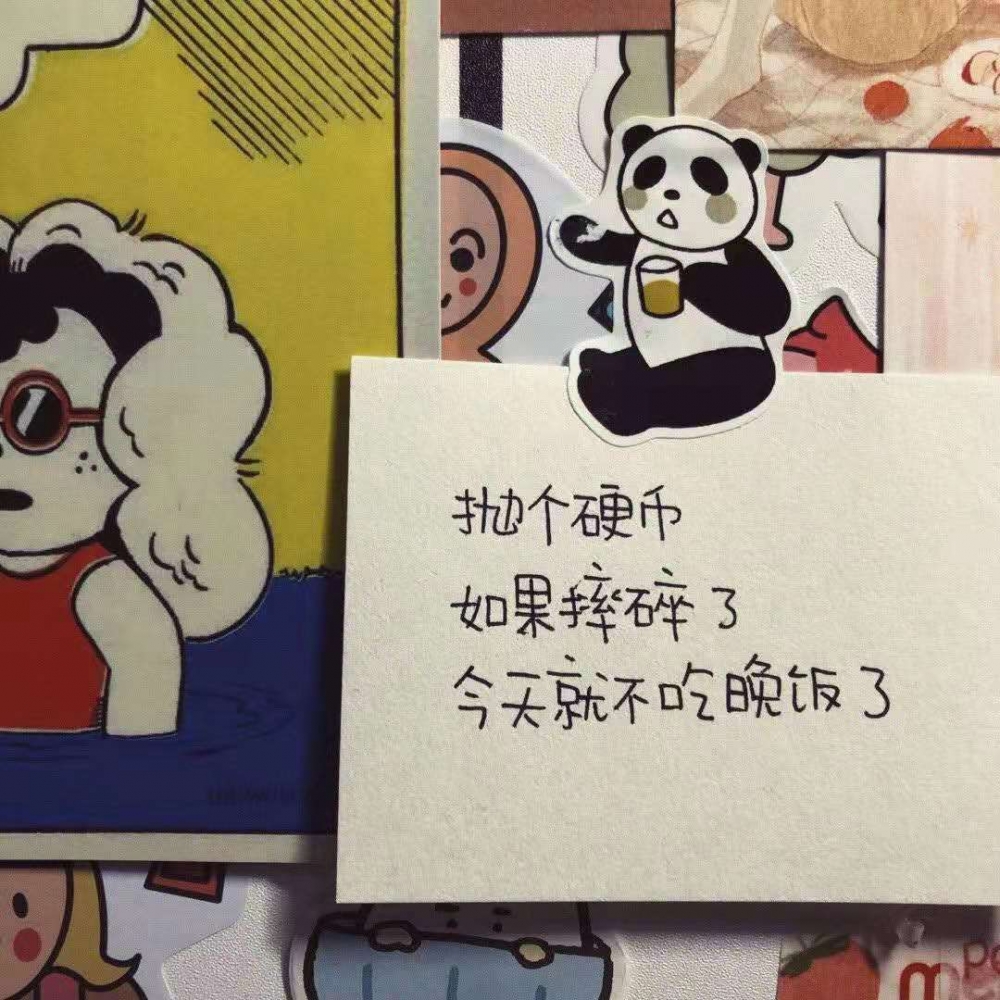 抛个硬币
如果摔碎了
今天就不吃晚饭了